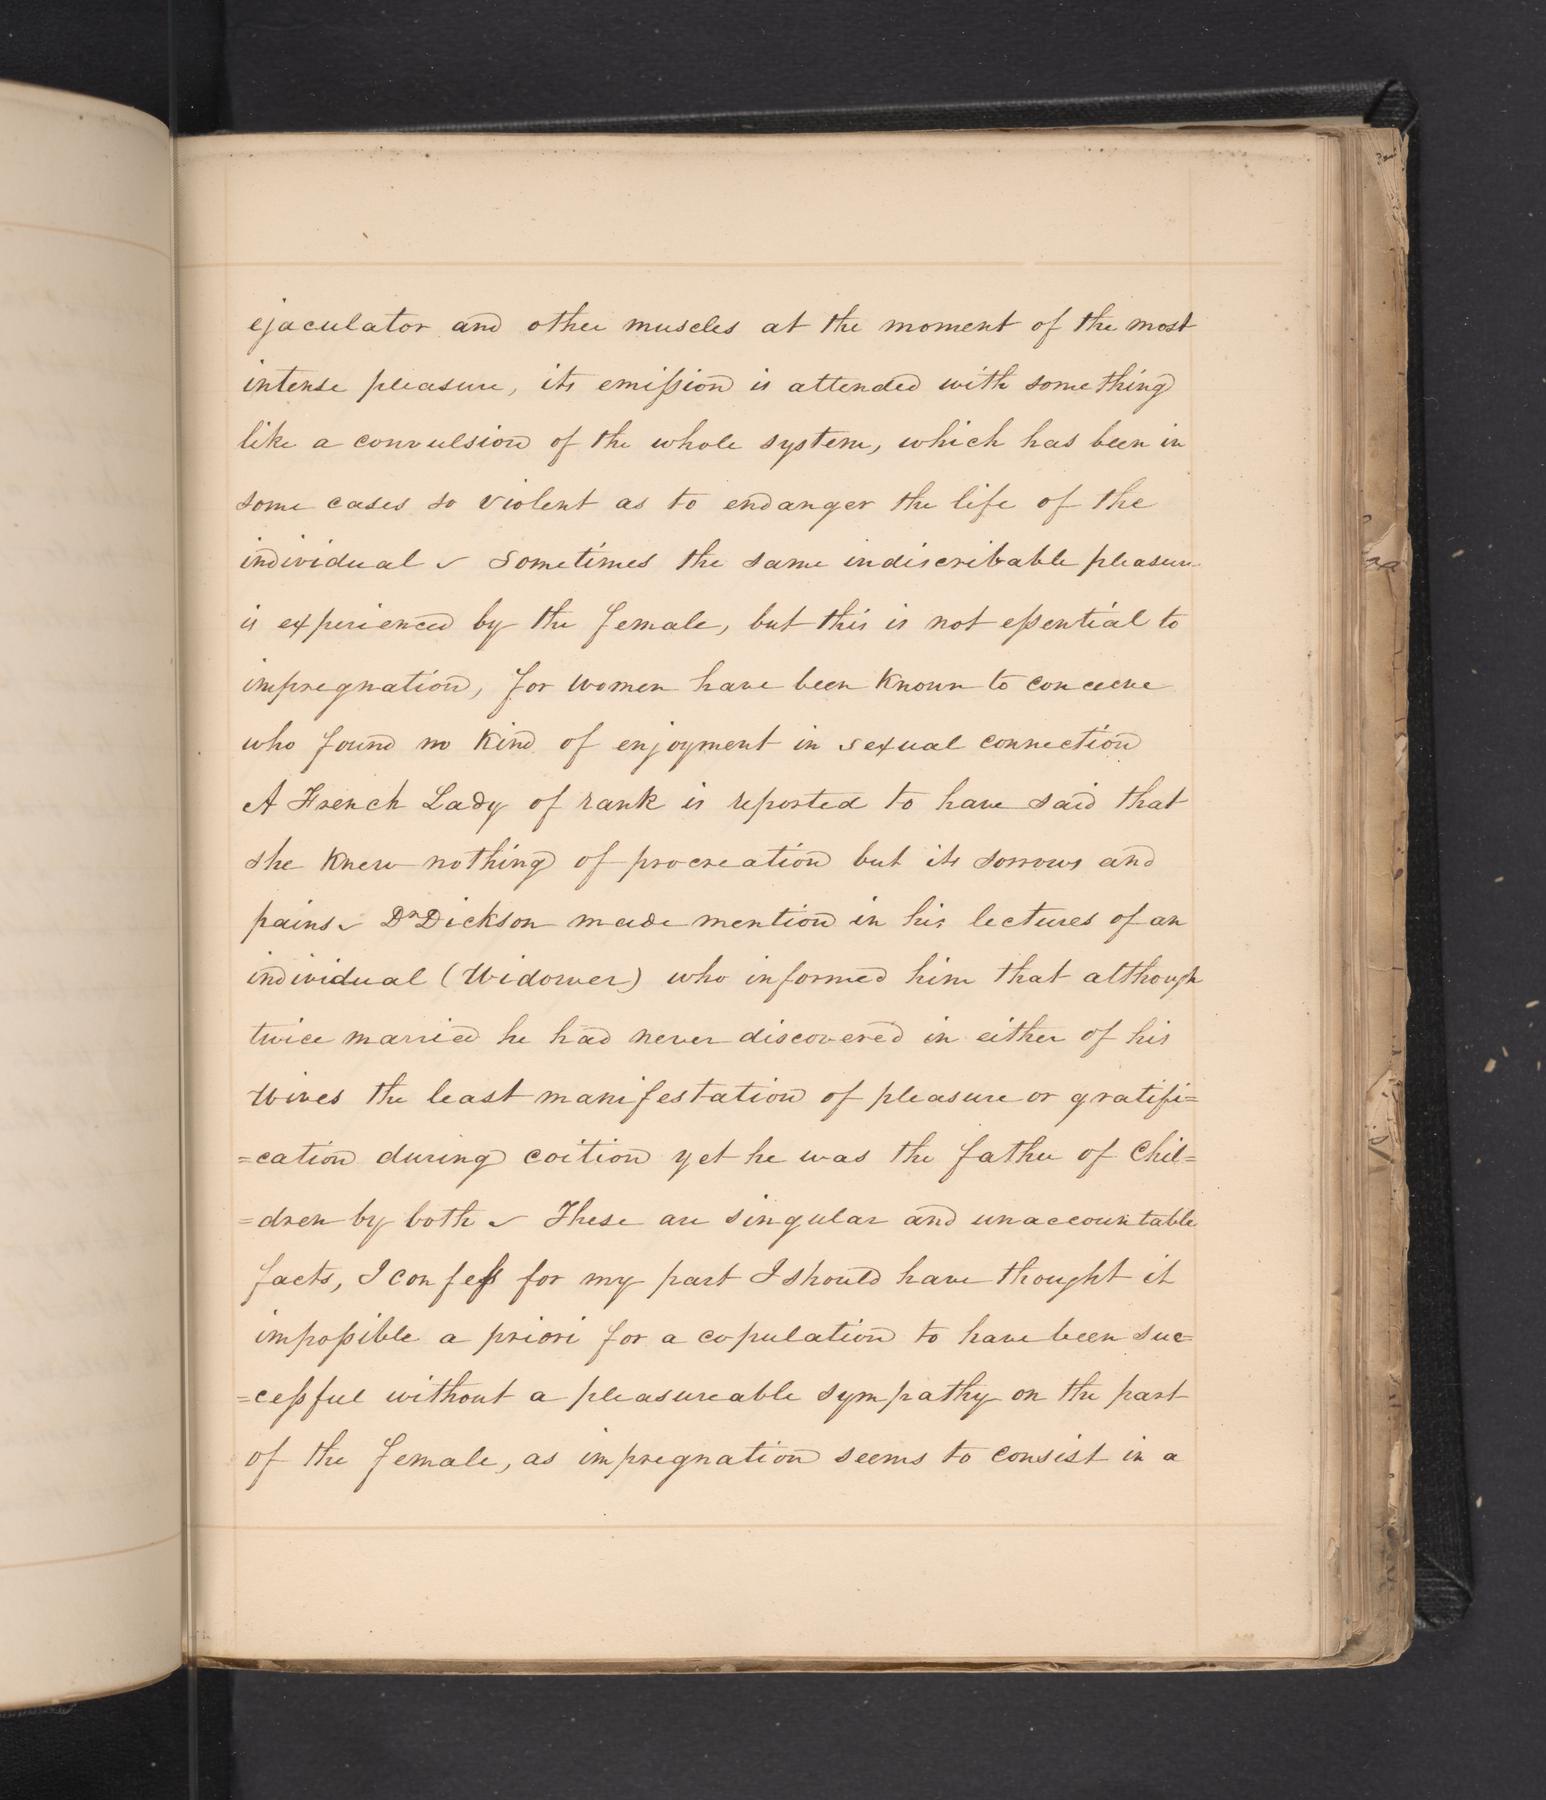 ejaculator and other muscles at the moment of the most
intense pleasure, its emission is attended with something
like a convulsion of the whole system, which has been in
some cases so violent as to endanger the life of the
individual ~ Sometimes the same indiscribable pleasure
is experienced by the female, but this is not essential to
impregnation, for women have been known to conceive
who found no kind of enjoyment in sexual connection
A French Lady of rank is reported to have said that
she knew nothing of procreation but its sorrows and
pains ~ Dr Dickson made mention in his lectures of an
individual (Widower) who informed him that although
twice married he had never discovered in either of his
Wives the least manifestation of pleasure or gratifi=
=cation during coition yet he was the father of Chil=
=dren by both ~ These are singular and unaccountable
facts, I confess for my part I should have thought it
impossible a priori for a copulation to have been suc=
=cessful without a pleasureable sympathy on the part
of the female, as impregnation seems to consist in a